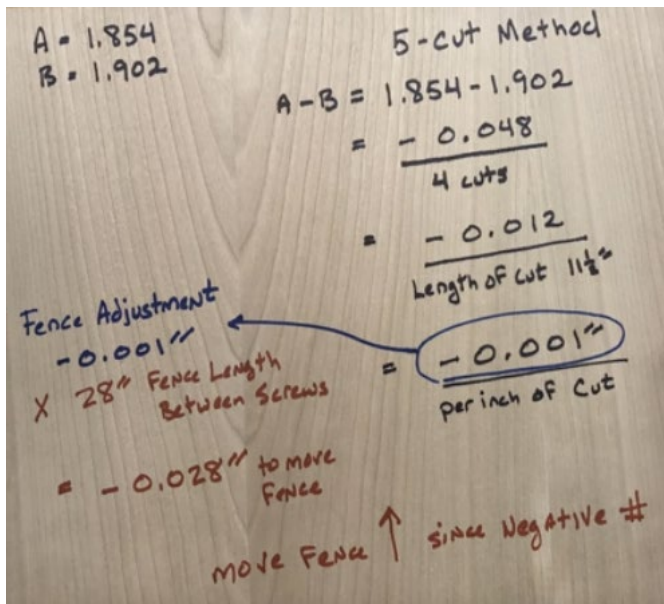 A = 1.854
B = 1.902
5-cut Method
A-B = 1.854-1.902
= - 0.048
4 cuts
= - 0.012
Length of cut 11½"
= - 0.001"
per inch of Cut
Fence Adjustment
-0.001"
X 28" Fence Length
Between Screws
= - 0.028" to move
Fence
move Fence ↑ since Negative #